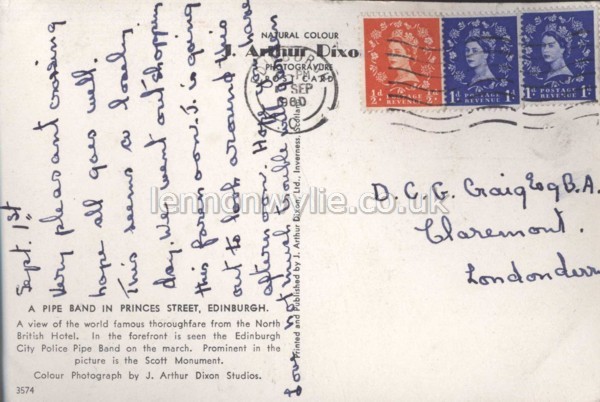 Sept. 1st
Very pleasant crossing
hope all goes well.
This seems a lovely
day. We went out shopping
this forenoon. J. is going
out to look around this
afternoon. Hope you have
not much trouble
Love
NATURAL COLOUR
J. Arthur Dixo
PHOTOGRAVURE
POST CARD
PM
SEP
1960
½d POSTAGE REVENUE ½d
1d POSTAGE REVENUE 1d
1d POSTAGE REVENUE 1d
D. C. G. Craig Esq B.A.
Claremont.
Londonderr
Printed and Published by J. Arthur Dixon, Ltd., Inverness, Scotland
A PIPE BAND IN PRINCES STREET, EDINBURGH.
A view of the world famous thoroughfare from the North
British Hotel. In the forefront is seen the Edinburgh
City Police Pipe Band on the march. Prominent in the
picture is the Scott Monument.
Colour Photograph by J. Arthur Dixon Studios.
3574
lennonwylie.co.uk